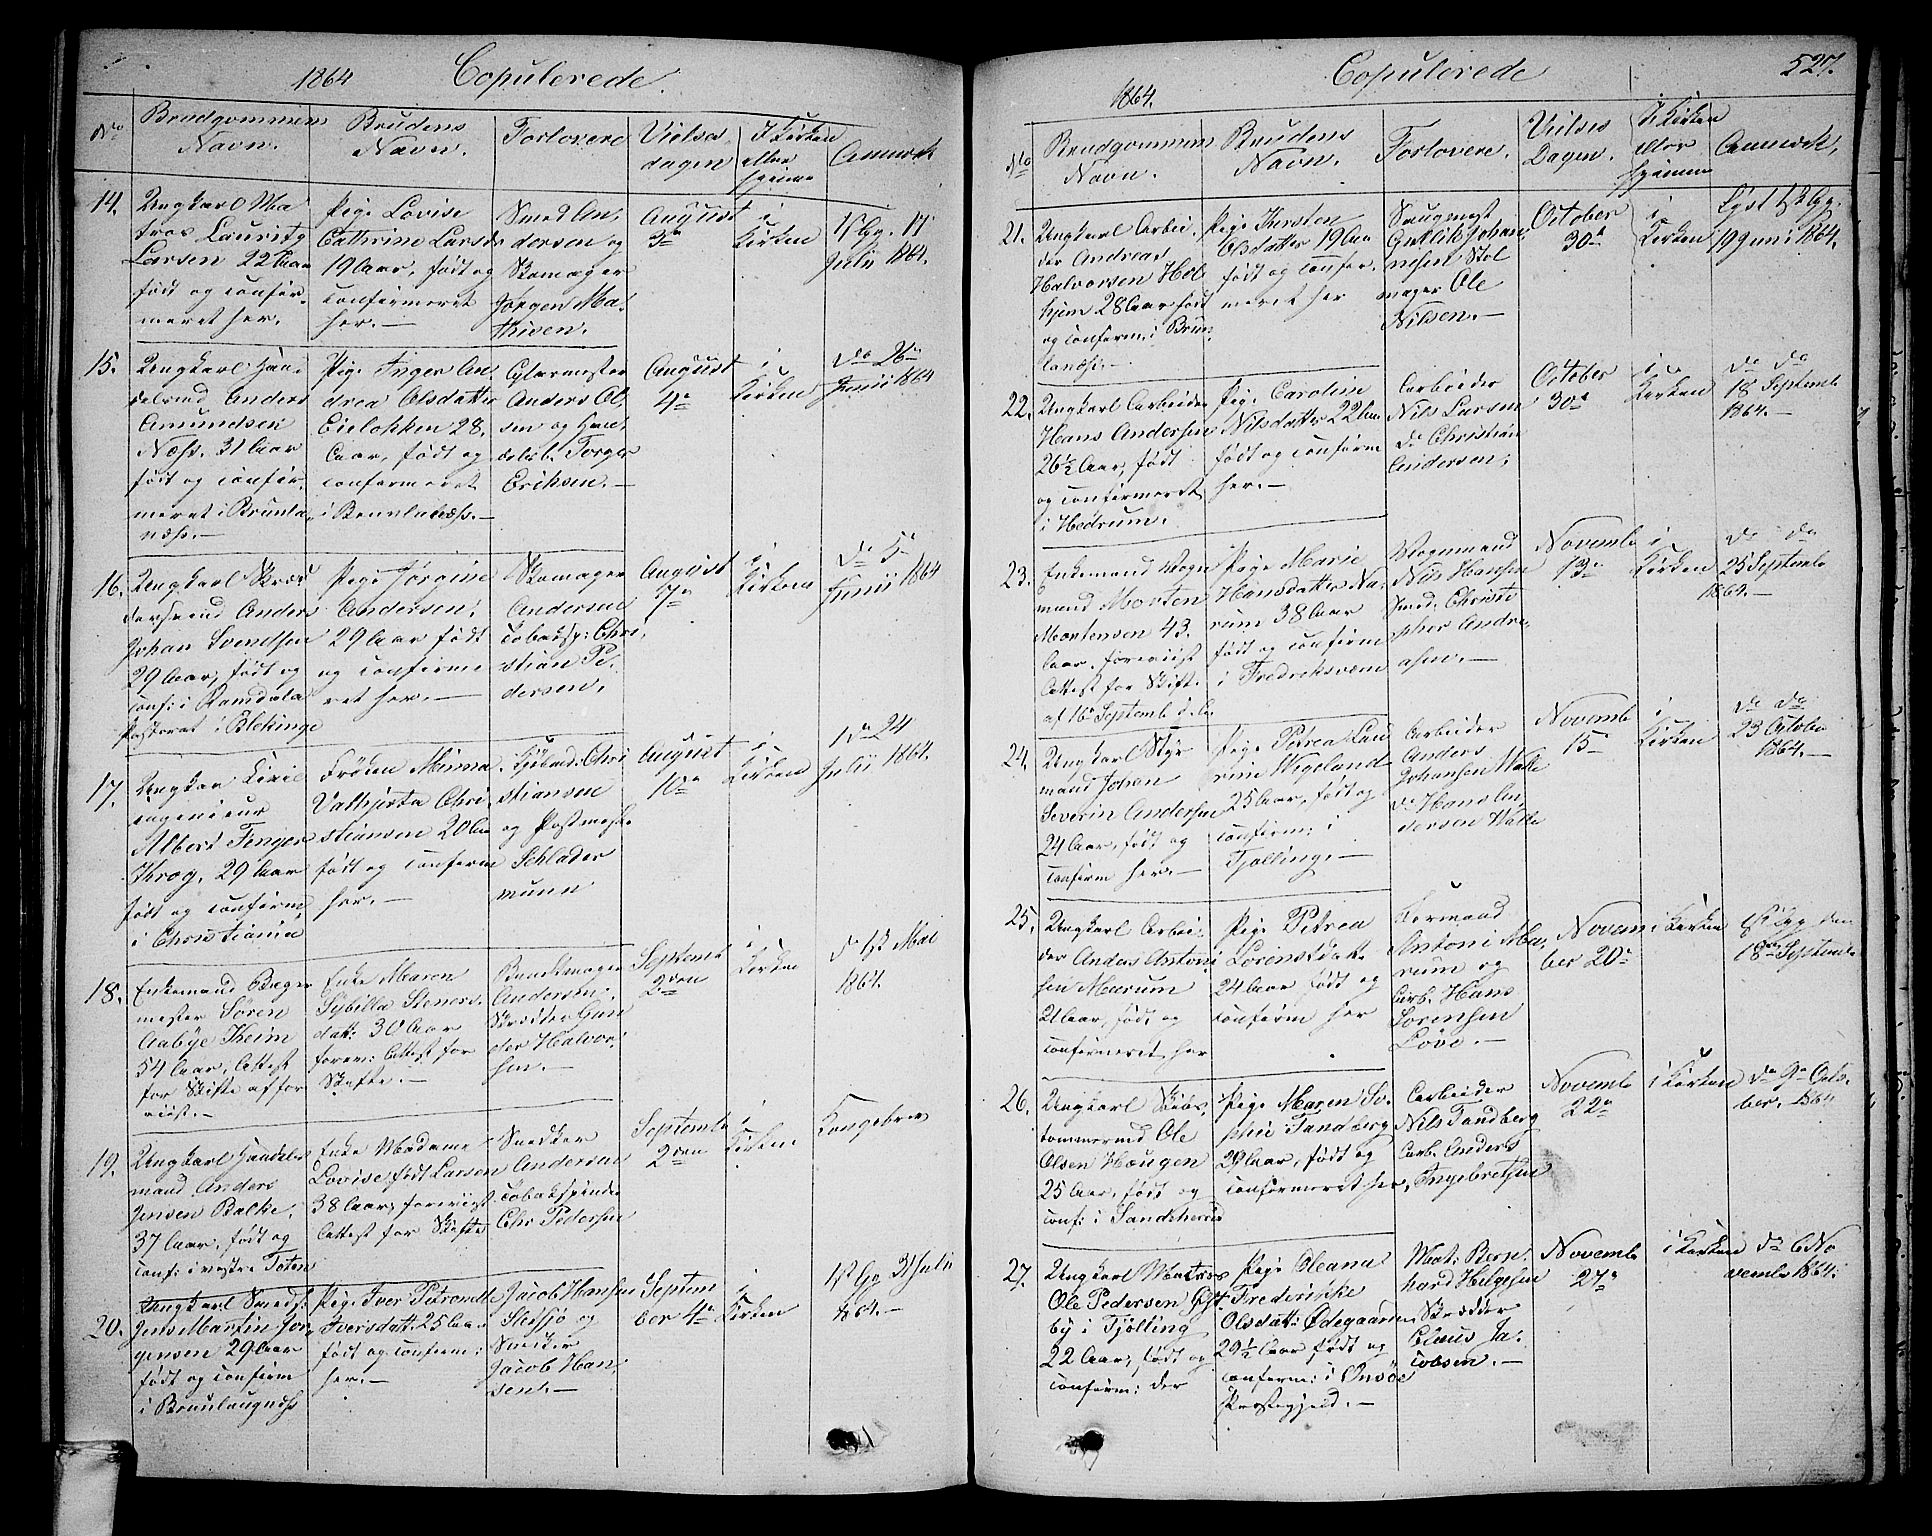 1864 Copulerede.
No
Brudgommens
Navn.
Brudens
Navn.
Forlovere
Vielses
dagen
I Kirken
eller
hjemme
Anmerk
14.
Ungkarl Ma
tros Lauritz
Larsen 22 Aar
født og confir-
meret her.
Pige Lovise
Cathrine Larsdr
19 Aar, født og
confirmeret
her.—
Smed An,
dersen og
Skomager
Jørgen Ma,
thisen.
August
3de
i
Kirken
1ste Gg. 17
Julii 1864.
15.
Ungkarl Han
delsmd Anders
Amundsen
Næss. 31 Aar
født og confir,
meret i Brunla,
næss.—
Pige Inger An,
drea Olsdatter
Eieløkken 28.
Aar, født og
confermeret
i Brunlanæss.—
Anders Ol,
sen og Han,
delsb. Torger
Eriksen.—
August
4de
i
Kirken
do 26de
Junii 1864
16.
Ungkarl Skræd
dersvend Anders
Johan Svendsen
29 Aar, født og
conf: i Ramdala
Pastorat i Blekinge
Pige Jørgine
Andersen,
29 Aar født
og confirme
ret her.—
Skomager
Andersen
Tobaksp: Chri,
stian Pe,
dersen,
August
7de
i
Kirken
do 5te
Junii 1864
17.
Ungkar Civil
ingenieur
Albert Fenger
Krog, 29 Aar
født og confirm,
i Christiania
Frøken Minna
Valhjerta Chri,
stiansen 20 Aar
født og confirm
her.—
Kjøbmd: Chri
stiansen
og Postmester
Schlader
munn
August
10de
i
Kirken
1 do 24
Julii 1864.
18.
Enkemand Bager
mester Søren
Aabye Kheim
54 Aar, Attest
for Skifte af for
viist.—
Enke Maren
Sybilla Steners,
datt: 30 Aar
forevi: Attest for
Skifte.—
Bundtmager
Andersen,
Skrædder Gun
der Halvor,
sen.—
Septemb
2den
i
Kirken
do 1ste Mai
1864.
19.
Ungkarl Handels
mand Anders
Jensen Balke,
37 Aar, født og
conf: i vestre Toten
Enke Madame
Lovise født Larsen
38 Aar, foreviist
Attest for Skifte
Snedker
Andersen
Tobakspinder
Chr Pedersen
Septembr
2den
i
Kirken
Kongebrev
20.
Ungkarl Smeds.
Jens Martin Jør,
gensen 29 Aar
født og confirm
i Brunlaugnæss
Pige Iver Petronelle
Iversdatt: 25 Aar
født og confirm:
her.—
Jacob Hansen
og
Snedker
Jacob Han,
sen.—
Septem
ber 4de
i
Kirken
1ste Gg 31 Julii
1864.—
1864. Copulerede 527.
No
Brudgommens
Navn.
Brudens
Navn.
Forlovere.
Vielses
Dagen.
I Kirken
eller
hjemme
Anmerk,
21.
Ungkarl Arbei,
der Andreas
Halvorsen Hol
hjem 28 Aar født
og confirm, i Brun
landss.—
Pige Kirsten
Olsdatter 19 Aar
født og confir,
meret her
Saugmest
Gutlik Johan,
nesen Stol
mager Ole
Nilsen.—
October
30te
i
Kirken
Lyst 1ste Gg.
19 Juni 1864.
22.
Ungkarl Arbeider
Hans Andersen
26½ Aar, født
og confirmeret
i Hedrum.
Pige Caroline
Nilsdatter 22 Aar
født og confirm
her.—
Arbeider
Nils Larsen
do Christian
Andersen,
October
30te
i
Kirken
do do
18 Septemb
1864.—
23.
Enkemand Vogn
mand Morten
Mortensen 43.
Aar. foreviist
Attest for Skift.
af 16de Septemb d. A.
Pige Marie
Hansdatter Na,
rum 38 Aar
født og confirm
i Fredriksvern
Vognmand
Nils Hansen
Smed. Christo
pher Andre,
asen.—
Novembr
13de
i
Kirken
do do
25 Septembr
1864.—
24.
Ungkarl Styr
mand Johan
Severin Andersen
24 Aar, født og
confirm her.—
Pige Petrea Lau
rine Wegeland
25 Aar, født og
confirm: i
Tjølling.—
Arbeider
Anders
Johansen Walle
do Hans An,
dersen Walle
Novemb
15de
i
Kirken
do do
23 October
1864.—
25.
Ungkarl Arbei,
der Anders Antoni
sen Marum
21 Aar, født og
confirmeret her
Pige Petrea
Lorentsdatt.
24 Aar født og
confirm her
Formand
Antoni Ma,
rum og
Arb. Hans
Sørensen
Løve.—
Novem
ber 20de
i Kirken
1ste Gg den
18de Septembr
26.
Ungkarl Skibs,
tømmermd Ole
Olsen Haugen
25 Aar, født og
conf: i Sandeherred
Pige Maren So,
phie Tandberg
29 Aar, født og
confirmeret her,
Arbeider
Nils Tandberg
Arb. Anders
Ingebretsen
Novembr
22de
i Kirken
do 9de Octo,
ber. 1864
27.
Ungkarl Matros
Ole Pedersen Øst,
by i Tjølling
22 Aar, født og
confirm: der
Pige Oleana
Frederikke
Olsdatt: Ødegaarden
29½ Aar født og
confirm: i Onsøe
Præstegjeld.—
Mat: Bern,
hard Helgesen
Skrædder
Claus Ja,
cobsen.—
Novembr
27de
i Kirken
do 6 No
vembr 1864.